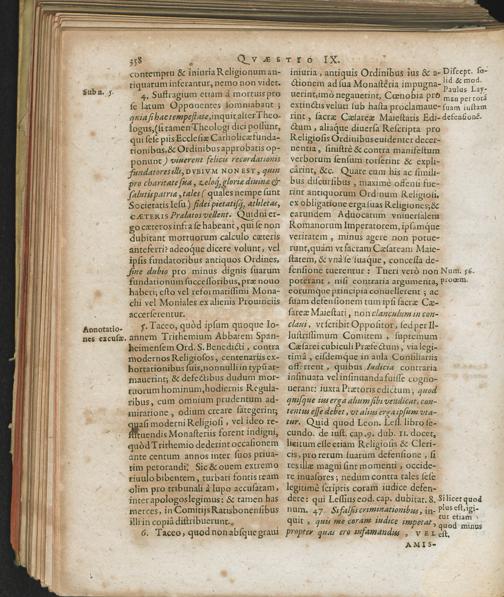 358
QVÆSTIO IX.
contemptu & iniuria Religionum an-
tiquarum inferantur, nemo non videt.
Sub n. 5.
4. Suffragium etiam à mortuis pro
se latum Opponentes somniabant;
quia si hac tempestate, inquit alter Theo-
logus, (si tamen Theologi dici possunt,
qui sese piis Ecclesiæ Catholicæ funda-
tionibus, & Ordinibus approbatis op-
ponunt) viuerent felicis recordationis
fundatores illi, DVBIVM NON EST, quin
pro charitate sua, & zelo, gloria diuina &
salutis patria, tales (quales nempe sunt
Societatis Iesu) fidei pietatisq, athletas,
CÆTERIS Prælatos vellent. Quidni er-
go cæteros infra se habeant, qui se non
dubitant mortuorum calculo cæteris
anteferri? adeoque dicere volunt, vel
ipsos fundatores antiquos Ordines,
sine dubio pro minus dignis suarum
fundationum successoribus, præ nouo
haberi, esto vel reformatissimi Mona-
chi vel Moniales ex alienis Prouinciis
accerserentur.
Annotatio-
nes excusæ.
5. Taceo, quòd ipsum quoque Io-
annem Trithemium Abbatem Span-
heimensem Ord. S. Benedicti, contra
modernos Religiosos, centenariis ex-
hortationibus suis, nonnulli in typis ar-
mauerint; & defectibus dudum mor-
tuorum hominum, hodiernis Regula-
ribus, cum omnium prudentum ad-
miratione, odium creare sategerint;
quasi moderni Religiosi, vel ideo re-
stituendis Monasteriis forent indigni,
quòd Trithemio dederint occasionem
ante centum annos inter suos priua-
tim petorandi? Sic & ouem extremo
riuulo bibentem, turbati fontis ream
olim pro tribunali à lupo accusatam,
inter apologos legimus: & tamen has
merces, in Comitiis Ratisbonensibus
illi in copia distribuerunt.
6. Taceo, quod non absque graui
iniuria, antiquis Ordinibus ius & a-
ctionem ad sua Monasteria impugna-
uerint, imò negauerint, Cœnobia pro
extinctis veluti sub hasta proclamaue-
rint, sacræ Cæsareæ Maiestatis Edi-
ctum, aliaque diuersa Rescripta pro
Religiosis Ordinibus euidenter decer-
nentia, sinistrè & contra manifestum
verborum sensum torserint & expli-
carint, &c. Quare cum his ac simili-
bus discursibus, maximè offensi fue-
rint antiquorum Ordinum Religiosi,
ex obligatione erga suas Religiones; &
earundem Aduocatum vniuersalem
Romanorum Imperatorem, ipsamque
veritatem, minus agere non potue-
runt, quàm vt sactam Cæsaream Maie-
statem, & vnà se suaque, concessa de-
fensione tuerentur: Tueri verò non
poterant, nisi contraria argumenta,
eorumque principia conuellerent; ac
suam defensionem tum ipsi sacræ Cæ-
sareæ Maiestati, non clanculum in con-
claui, vt scribit Oppositor, sed per Il-
lustrissimum Comitem, supremum
Cæsarei cubiculi Præfectum, via legi-
timâ, eisdemque in aula Consiliariis
offerrent, quibus Iudicia contraria
insinuata vel insinuanda fuisse cogno-
uerant: iuxta Prætoris edictum, quod
quisque ius erga alium sibi vendicat, con-
tentus esse debet, vt alius erga ipsum vta-
tur. Quid quod Leon. Lessi. libro se-
cundo. de iust. cap. 9. dub. 11. docet,
licitum esse etiam Religiosis & Cleri-
cis, pro rerum suarum defensione, si
res illæ magni sint momenti, occide-
re inuasores; nedum contra tales sese
legitimè scriptis coram iudice defen-
dere: qui Lessius eod. cap. dubitat. 8.
num. 47 Si falsis criminationibus, in-
quit, quis me coram iudice impetat,
propter quas ero infamandus, VEL
AMIS-
Discept. so-
lid & mod.
Paulus Lay-
man pro tota
suam iustam
defensionē.
Num. 56.
proœm.
Si licet quod
plus est, igi-
tur etiam
quod minus
est.